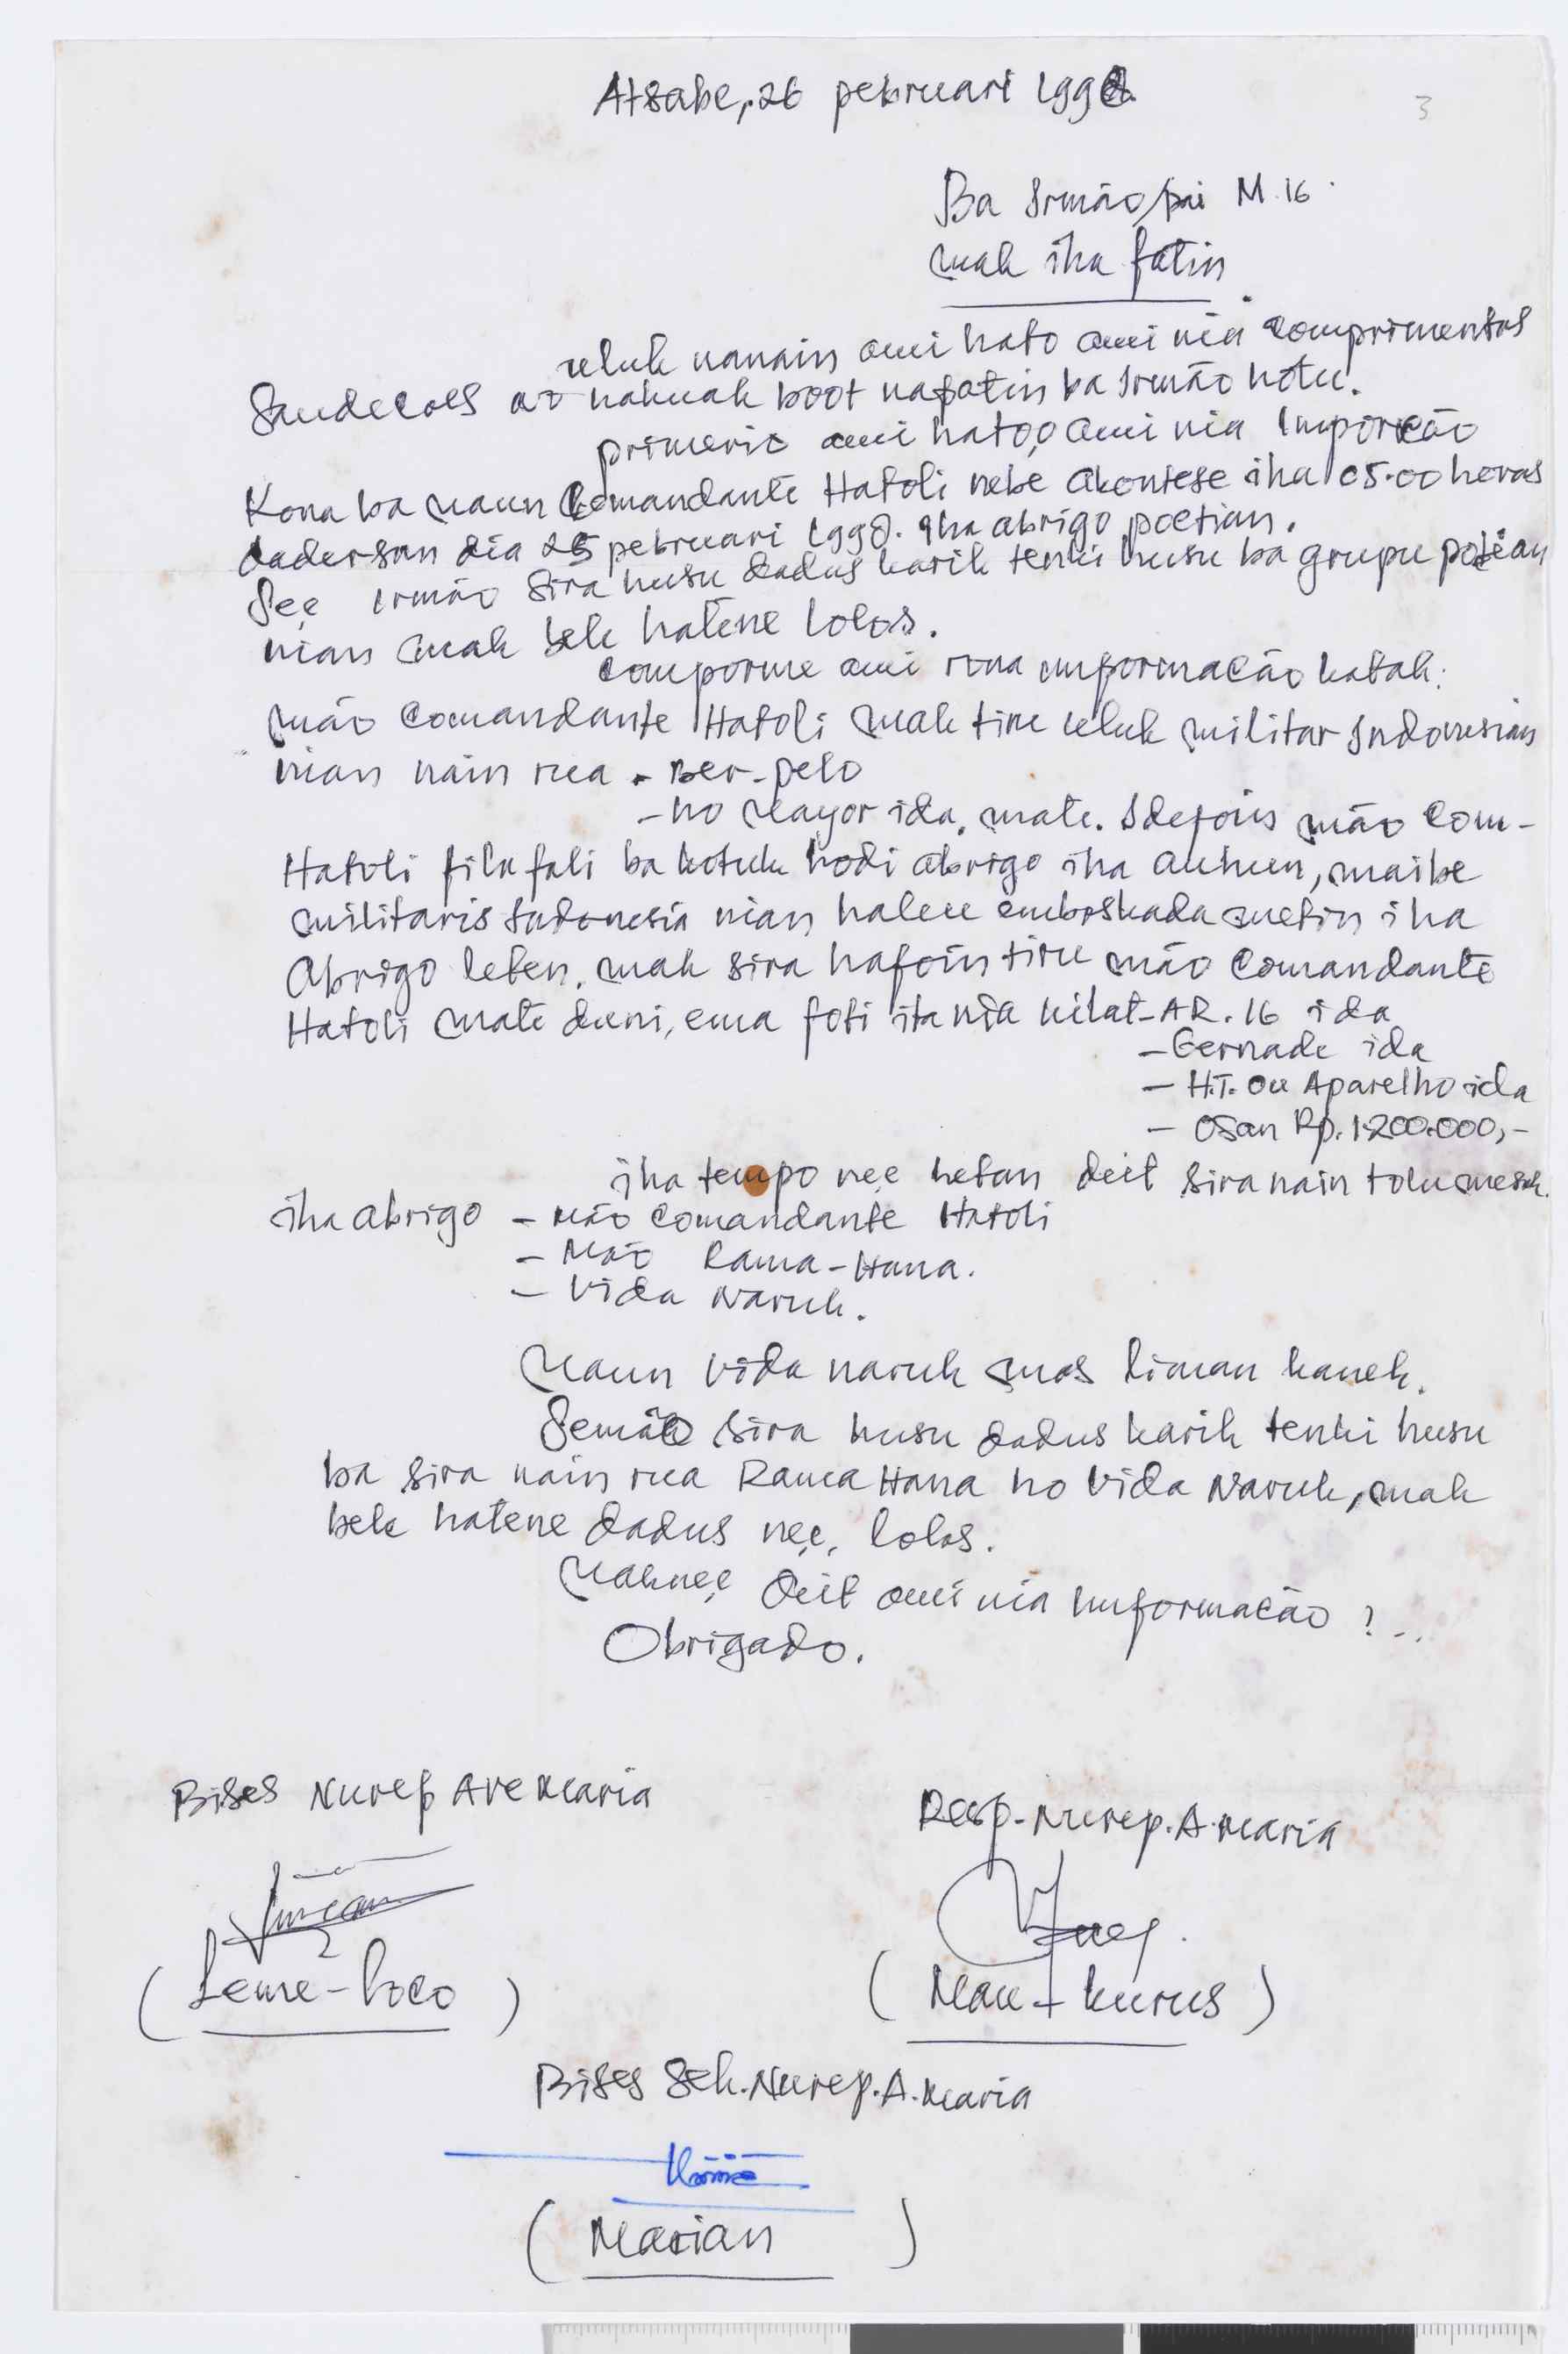 Atsabe, 26 pebruari 1998.
3
Ba Irmão/pai M.16.
mak iha fatin
uluk nanain ami hato ami nia comprimentos
Saudecoes no hakuak boot nafatin ba Irmão hotu.
primeric ami hatoo ami nia
Kona ba maun Comandante Hatoli nebe akontese iha 05.00 horas
dadersan dia 25 pebruari 1998. Iha abrigo poetian.
See Irmão sira husu dadus karik tenki husu ba grupu poetian
nian mak bele hatene lolos.
comporme ami rona imformacão katak:
mão Comandante Hatoli mak tiru uluk militar Indonesian
nian nain rua - Ber-pelo
- no Mayor ida. mate. Idefois mão Com-
Hatoli fila fali ba kotuk hodi abrigo iha auhun, maibe
militaris Indonesia nian haleu emboskada metin iha
Abrigo leten. mak sira hafoin tiru mão Comandante
Hatoli mate duni, ema foti ita nia kilat - AR. 16 ida
- Gernade ida
- H.T. ou Aparelho ida
- Osan Rp. 1.200.000,-
iha tempo nee hetan deit sira nain tolu mesak.
iha abrigo - mão Comandante Hatoli
- Mão Rama-Hana.
- Vida Naruk.
Maun Vida naruk mos liman kanek.
Semão sira husu dadus karik tenki husu
ba sira nain rua Rama Hana ho Vida Naruk, mak
bele hatene dadus nee, lolos.
Maknee deit ami nia imformacão !..
Obrigado.
Bises Nurep Ave Maria
Resp. Nurep. A. Maria
(Leme-loco)
(Mau + kurus)
Bises Sek. Nurep. A. Maria
(Marian)